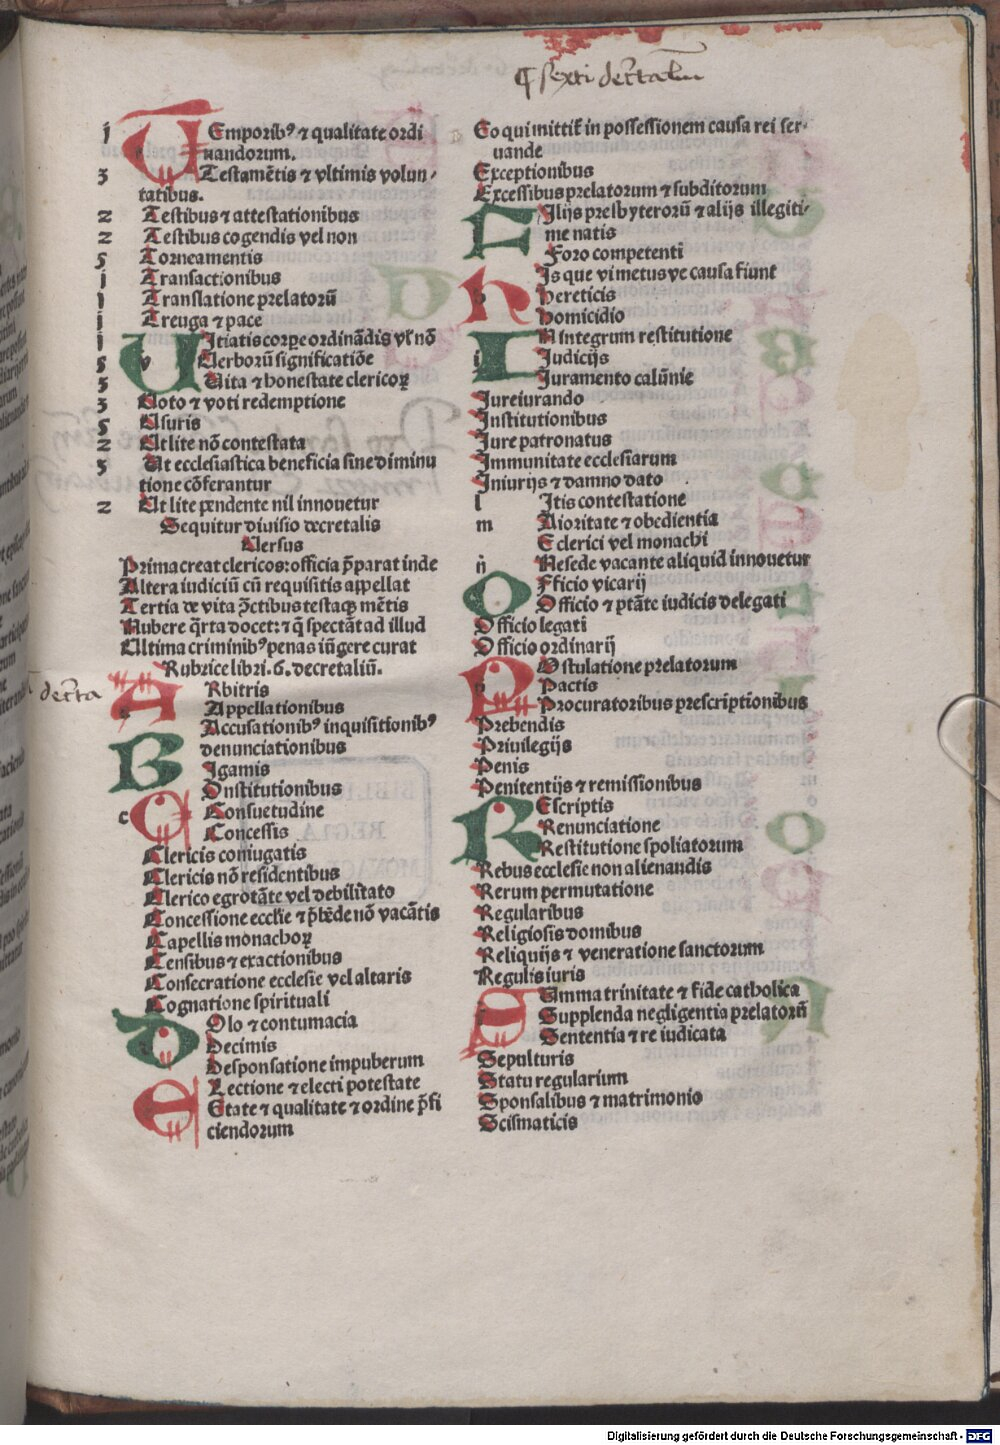 ¶ sexti decretaliu
j TEmporibꝰ ⁊ qualitate ordi
nandorum.
3 Testamētis ⁊ vltimis volun⸗
tatibus.
2 Testibus ⁊ attestationibus
2 Testibus cogendis vel non
5 Torneamentis
j Transactionibus
l Translatione prelatorū
j Treuga ⁊ pace
l Vitiatis corpe ordinādis vl nō
5 v Verborū significatiōe
3 Vita ⁊ honestate clericoꝝ
3 Voto ⁊ voti redemptione
5 Vsuris
2 Vt lite nō contestata
3 Vt ecclesiastica beneficia sine diminu
tione cōferantur
2 Vt lite pendente nil innouetur
Sequitur diuisio decretalis
Versus
Prima creat clericos: officia p̄parat inde
Altera iudiciū cū requisitis appellat
Tertia de vita ꝯctibus testaqꝫ mētis
Nubere q̄rta docet: ⁊ q̄ spectāt ad illud
Vltima criminibꝰ penas iūgere curat
Rubrice libri. 6. decretaliū.
decreta
ARbitris
Appellationibus
Accusationibꝰ inquisitionibꝰ
denunciationibus
BIgamis
COnstitutionibus
c Consuetudine
Concessis
Clericis coniugatis
Clericis nō residentibus
Clerico egrotāte vel debilitato
Concessione ecclie ⁊ p̄bēde nō vacātis
Capellis monachoꝝ
Censibus ⁊ exactionibus
Consecratione ecclesie vel altaris
Cognatione spirituali
DOlo ⁊ contumacia
Decimis
Desponsatione impuberum
ELectione ⁊ electi potestate
Etate ⁊ qualitate ⁊ ordine p̄fi
ciendorum
Eo qui mittit̄ in possessionem causa rei ser⸗
uande
Exceptionibus
Excessibus prelatorum ⁊ subditorum
FIlijs presbyterorū ⁊ alijs illegiti⸗
me natis
Foro competenti
HIs que vi metusve causa fiunt
h Hereticis
Homicidio
IN integrum restitutione
i Iudicijs
Iuramento calūnie
Iureiurando
Institutionibus
Iure patronatus
Immunitate ecclesiarum
Iniurijs ⁊ damno dato
l Itis contestatione
m Aioritate ⁊ obedientia
E clerici vel monachi
n̄ Ne sede vacante aliquid innouetur
OFficio vicarij
Officio ⁊ ptāte iudicis delegati
Officio legati
Officio ordinarij
POstulatione prelatorum
p Pactis
Procuratoribus prescriptionibus
Prebendis
Priuilegijs
Penis
Penitentijs ⁊ remissionibus
REscriptis
Renunciatione
Restitutione spoliatorum
Rebus ecclesie non alienandis
Rerum permutatione
Regularibus
Religiosis domibus
Reliquijs ⁊ veneratione sanctorum
Regulis iuris
SUmma trinitate ⁊ fide catholica
Supplenda negligentia prelatorū
Sententia ⁊ re iudicata
Sepulturis
Statu regularium
Sponsalibus ⁊ matrimonio
Scismaticis
Digitalisierung gefördert durch die Deutsche Forschungsgemeinschaft - DFG